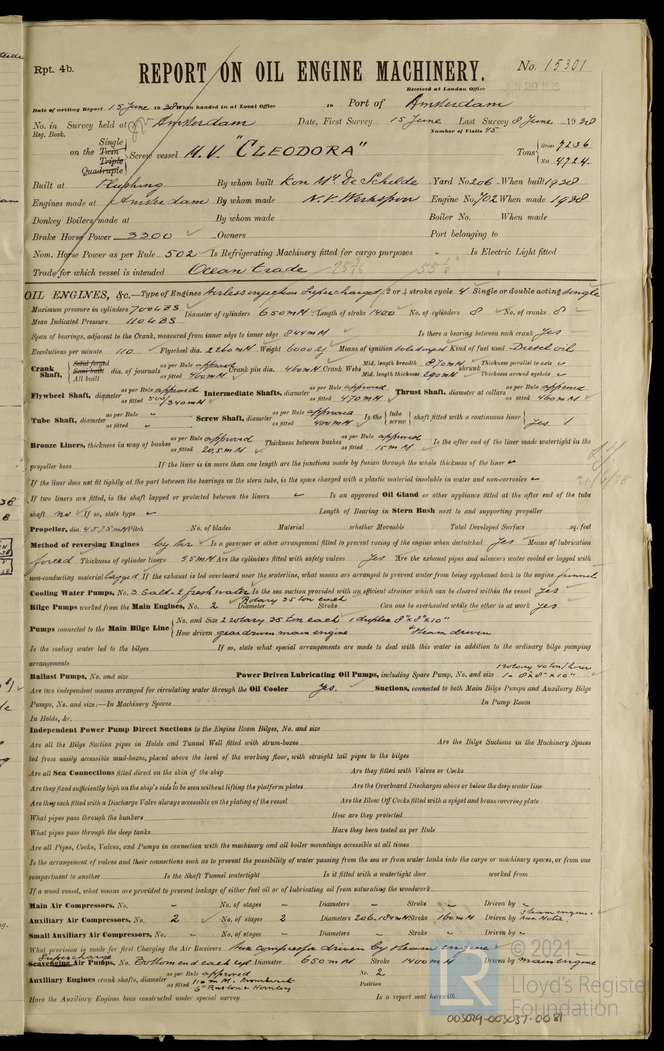 Rpt. 4b.
REPORT ON OIL ENGINE MACHINERY.
No. 15301
Received at London Office
Date of writing Report 15 June 1938 When handed in at Local Office 19 Port of Amsterdam
No. in Survey held at Amsterdam Date, First Survey 15 June Last Survey 8 June 1938
Reg. Book. Number of Visits 45
Single
on the Twin Screw vessel M.V. "CLEODORA" Tons Gross 7236
Triple Net 4724
Quadruple
Built at Flushing By whom built Kon Mij De Schelde Yard No. 206 When built 1938
Engines made at Amsterdam By whom made N.V. Werkspoor Engine No. 702 When made 1938
Donkey Boilers made at By whom made Boiler No. When made
Brake Horse Power 3300 Owners Port belonging to
Nom. Horse Power as per Rule 502 Is Refrigerating Machinery fitted for cargo purposes Is Electric Light fitted
Trade for which vessel is intended Ocean Trade
OIL ENGINES, &c.—Type of Engines Airless injection Supercharged 2 or 4 stroke cycle 4 Single or double acting Single
Maximum pressure in cylinders 700 LBS Diameter of cylinders 650 mM Length of stroke 1400 No. of cylinders 8 No. of cranks 8
Mean Indicated Pressure 110 LBS
Span of bearings, adjacent to the Crank, measured from inner edge to inner edge 844 mM Is there a bearing between each crank Yes
Revolutions per minute 110 Flywheel dia. 2260 mM Weight 6000 Means of ignition Kind of fuel used Diesel oil
Crank Shaft, Solid forged Semi built All built dia. of journals as per Rule approved as fitted 460 mM Crank pin dia. 460 mM Crank Webs Mid. length breadth 870 mM Thickness parallel to axis
Mid. length thickness 290 mM shrunk Thickness around eyehole
Flywheel Shaft, diameter as per Rule approved as fitted Intermediate Shafts, diameter as per Rule approved as fitted 470 mM Thrust Shaft, diameter at collars as per Rule approved as fitted 460 mM
Tube Shaft, diameter as per Rule as fitted Screw Shaft, diameter as per Rule approved as fitted 400 mM Is the tube screw shaft fitted with a continuous liner Yes
Bronze Liners, thickness in way of bushes as per Rule approved as fitted 20,5 mM Thickness between bushes as per Rule approved as fitted 15 mM Is the after end of the liner made watertight in the
propeller boss If the liner is in more than one length are the junctions made by fusion through the whole thickness of the liner
If the liner does not fit tightly at the part between the bearings in the stern tube, is the space charged with a plastic material insoluble in water and non-corrosive
If two liners are fitted, is the shaft lapped or protected between the liners Is an approved Oil Gland or other appliance fitted at the after end of the tube
shaft no If so, state type Length of Bearing in Stern Bush next to and supporting propeller
Propeller, dia. 4575 mM Pitch No. of blades Material whether Moveable Total Developed Surface sq. feet
Method of reversing Engines by air Is a governor or other arrangement fitted to prevent racing of the engine when declutched Yes Means of lubrication
forced Thickness of cylinder liners 55 mM Are the cylinders fitted with safety valves Yes Are the exhaust pipes and silencers water cooled or lagged with
non-conducting material lagged If the exhaust is led overboard near the waterline, what means are arranged to prevent water from being syphoned back to the engine funnel
Cooling Water Pumps, No. 3 Salt 2 fresh water Is the sea suction provided with an efficient strainer which can be cleared within the vessel Yes
Bilge Pumps worked from the Main Engines, No. 2 Diameter Rotary 35 ton each Stroke Can one be overhauled while the other is at work Yes
Pumps connected to the Main Bilge Line No. and Size 2 rotary 35 ton each 1 duplex 8"x8"x10"
How driven geardriven main engine steam driven
Is the cooling water led to the bilges If so, state what special arrangements are made to deal with this water in addition to the ordinary bilge pumping
arrangements
Ballast Pumps, No. and size Power Driven Lubricating Oil Pumps, including Spare Pump, No. and size 1 Rotary 40 ton/hour 1- 8"x8"x10"
Are two independent means arranged for circulating water through the Oil Cooler Yes. Suctions, connected to both Main Bilge Pumps and Auxiliary Bilge
Pumps, No. and size:—In Machinery Spaces In Pump Room
In Holds, &c.
Independent Power Pump Direct Suctions to the Engine Room Bilges, No. and size
Are all the Bilge Suction pipes in Holds and Tunnel Well fitted with strum-boxes Are the Bilge Suctions in the Machinery Spaces
led from easily accessible mud-boxes, placed above the level of the working floor, with straight tail pipes to the bilges
Are all Sea Connections fitted direct on the skin of the ship Are they fitted with Valves or Cocks
Are they fixed sufficiently high on the ship's side to be seen without lifting the platform plates Are the Overboard Discharges above or below the deep water line
Are they each fitted with a Discharge Valve always accessible on the plating of the vessel Are the Blow Off Cocks fitted with a spigot and brass covering plate
What pipes pass through the bunkers How are they protected
What pipes pass through the deep tanks Have they been tested as per Rule
Are all Pipes, Cocks, Valves, and Pumps in connection with the machinery and all boiler mountings accessible at all times
Is the arrangement of valves and their connections such as to prevent the possibility of water passing from the sea or from water tanks into the cargo or machinery spaces, or from one
compartment to another Is the Shaft Tunnel watertight Is it fitted with a watertight door worked from
If a wood vessel, what means are provided to prevent leakage of either fuel oil or of lubricating oil from saturating the woodwork
Main Air Compressors, No. No. of stages Diameters Stroke Driven by
Auxiliary Air Compressors, No. 2 No. of stages 2 Diameters 206-184 mM Stroke 160 mM Driven by steam engine
Small Auxiliary Air Compressors, No. No. of stages Diameters Stroke Driven by
What provision is made for first Charging the Air Receivers Aux compressor driven by steam engine
Supercharge
Scavenging Air Pumps, No. Bottom end each cyl Diameter 650 mM Stroke 1400 mM Driven by main engine
Auxiliary Engines crank shafts, diameter as per Rule approved as fitted 110 mM. 6" Ruston & Hornsby No. 2 Position
Have the Auxiliary Engines been constructed under special survey Is a report sent herewith
© 2021
Lloyd's Register
Foundation
LR
003029-003037-0081